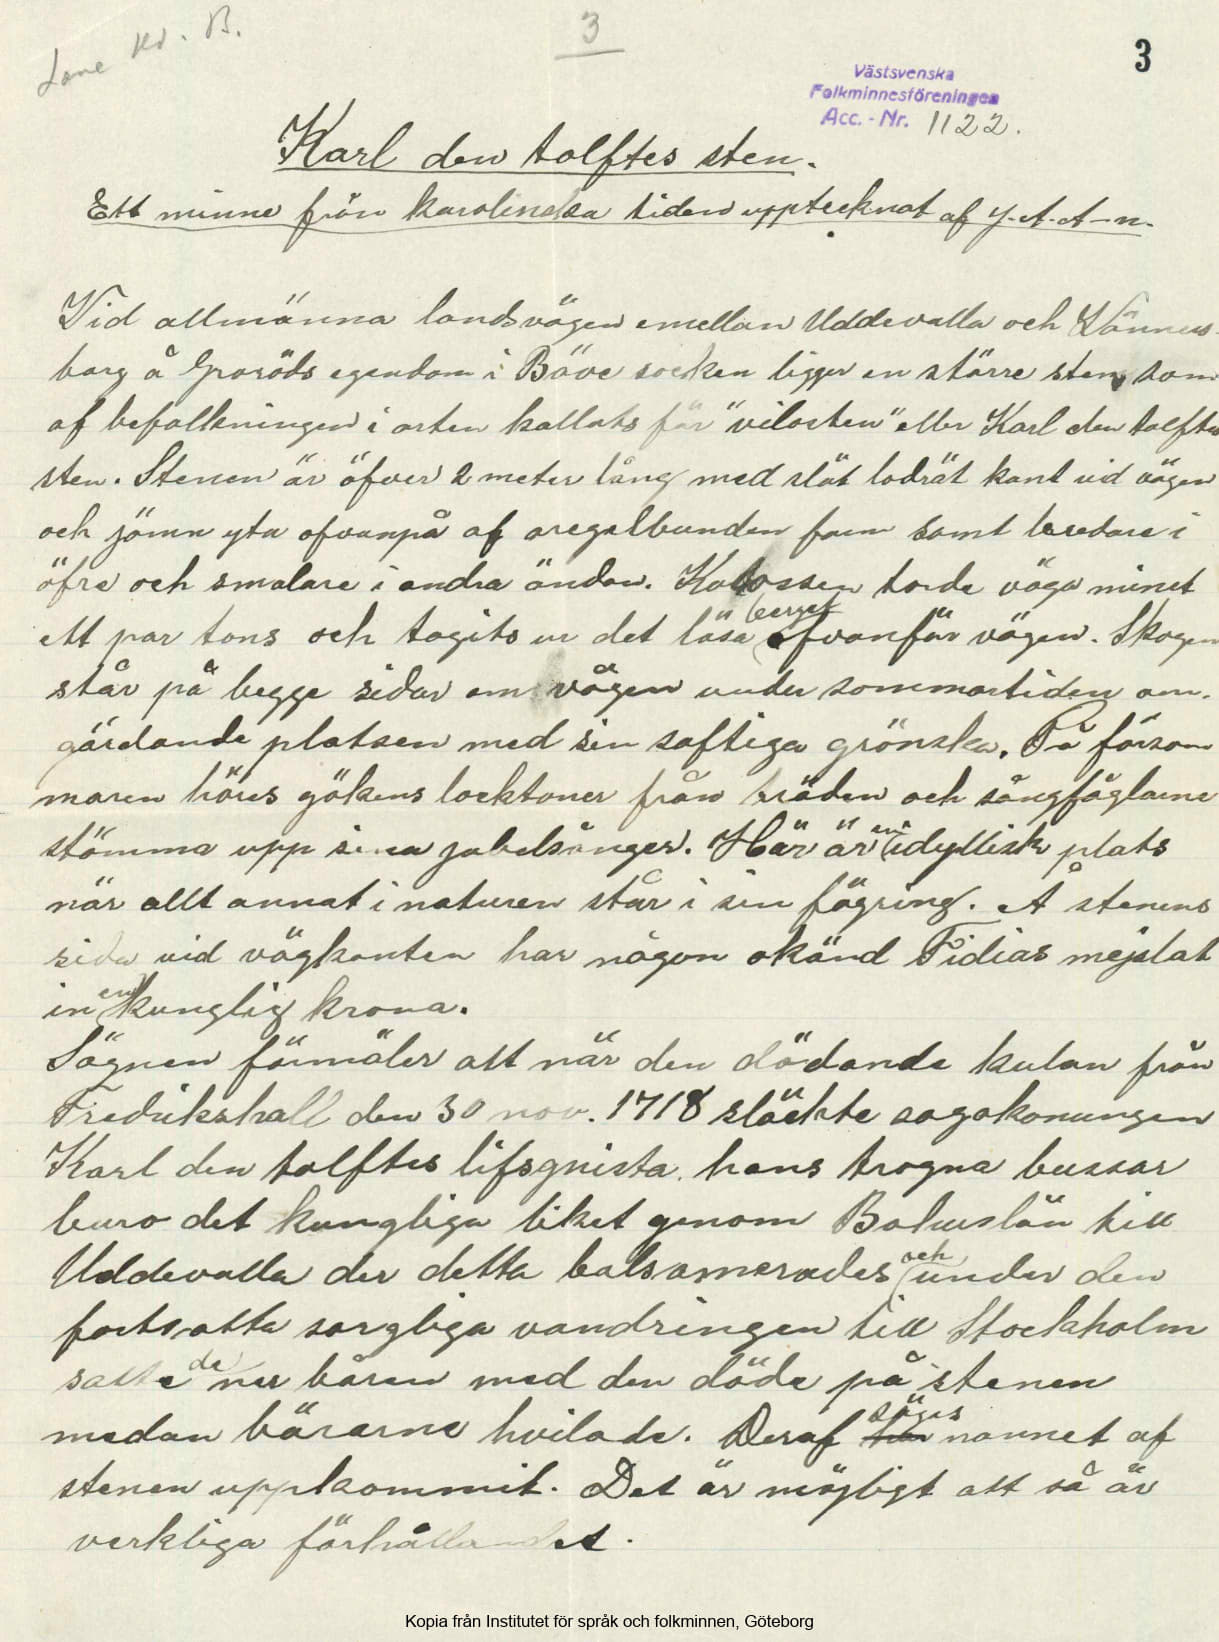 Lane hd. B.
3
3
Västsvenska
Folkminnesföreningen
Acc.-Nr. 1122.
Karl den tolftes sten.
Ett minne från karolinska tiden upptecknat af J. A. A-n.
Vid allmänna landsvägen emellan Uddevalla och Vänners-
borg å Grosröds egendom i Bäve socken ligger en större sten, som
af befolkningen i orten kallats för "vilosten" eller Karl den tolftes
sten. Stenen är öfver 2 meter lång med slät lodrät kant vid vägen
och jämn yta ofvanpå af oregelbunden form samt bredare i
öfre och smalare i andra ändan. Kolossen torde väga minst
ett par tons och tagits ur det lösa berget ofvanför vägen. Skogen
står på begge sidor om vägen under sommartiden om-
gärdande platsen med sin saftiga grönska. På försom
maren höres gökens locktoner från träden och sångfåglarne
stämma upp sina jubelsånger. Här är en idyllisk plats
när allt annat i naturen står i sin fägring. Å stenens
sida vid vägkanten har någon okänd Fidias mejslat
in en kunglig krona.
Sägnen förmäler att när den dödande kulan från
Fredrikshall den 30 nov. 1718 släckte sagokonungen
Karl den tolftes lifsgnista, hans trogna bussar
buro det kungliga liket genom Bohuslän till
Uddevalla der detta balsamerades och under den
fortsatta sorgliga vandringen till Stockholm
satte de ner båren med den döde på stenen
medan bärarne hvilade. Deraf säges namnet af
stenen uppkommit. Det är möjligt att så är
verkliga förhållandet.
Kopia från Institutet för språk och folkminnen, Göteborg